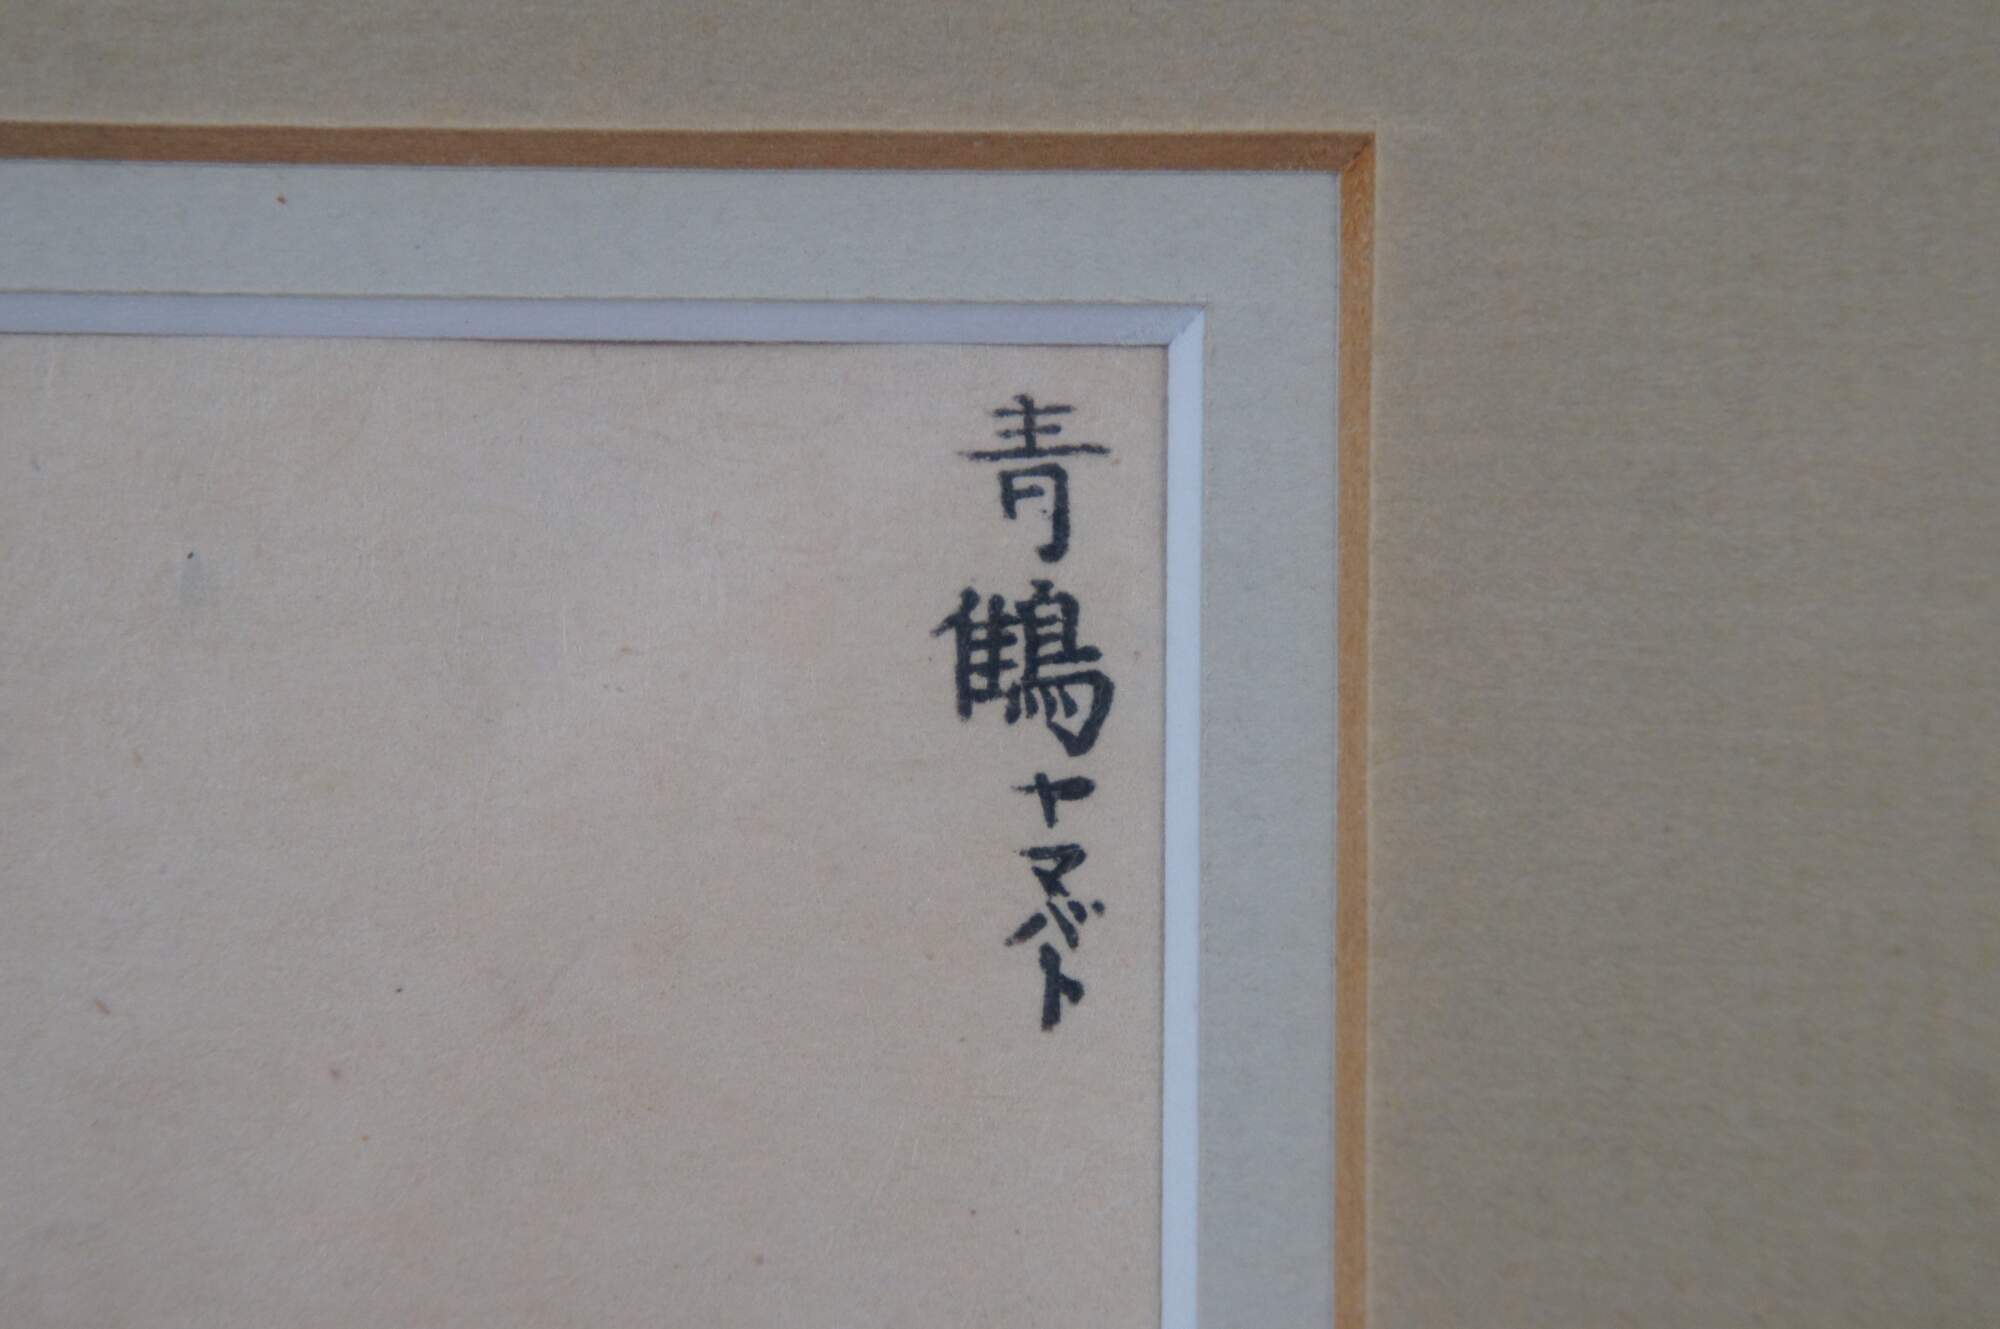 青鵻ヤマバト